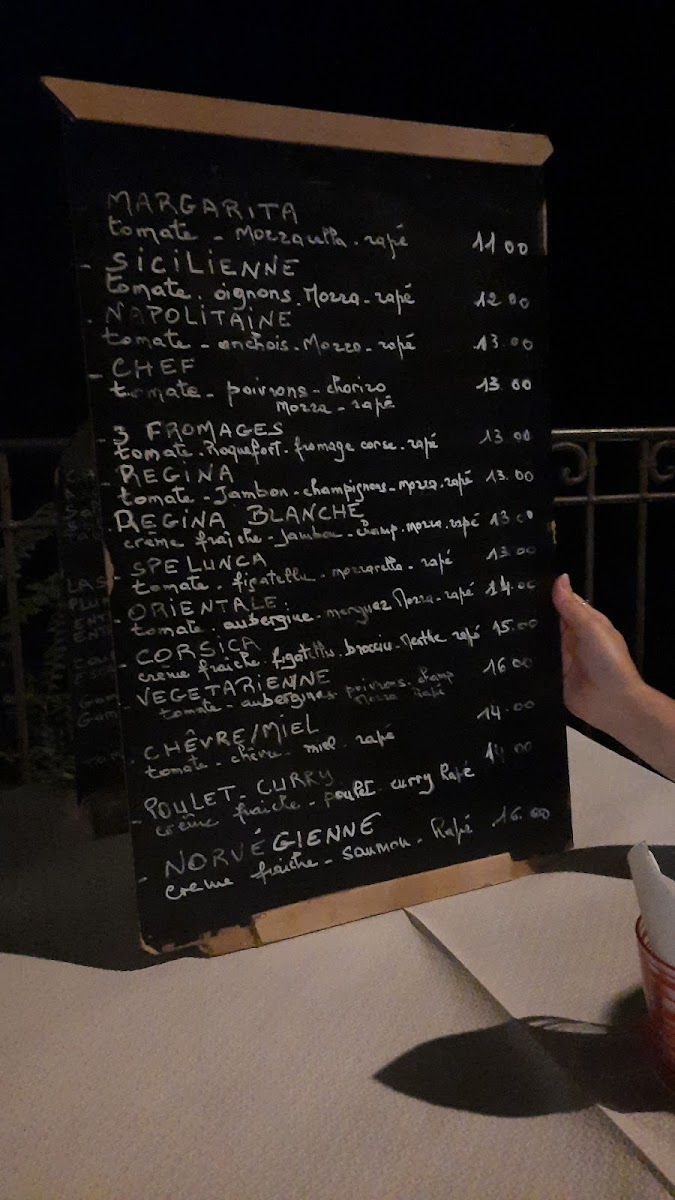 MARGARITA
tomate - Mozzarella. rapé 11 00
- SICILIENNE
tomate. oignons. Mozza - rapé 12 00
. NAPOLITAINE
tomate - anchois. Mozza - rapé 13.00
- CHEF
tomate - poivrons - chorizo 13 00
Mozza - rapé
- 3 FROMAGES
tomate. Roquefort. fromage corse. rapé 13 00
- REGINA
tomate - Jambon - champignons - mozza. rapé 13.00
. REGINA BLANCHE
crème fraîche - Jambon - champ. mozza. rapé 13 00
- SPELUNCA
tomate - figatellu - mozzarella - rapé 13.00
- ORIENTALE:
tomate. aubergine - merguez Mozza - rapé 14.00
- CORSICA
crème fraiche. figatellu. brocciu. Menthe rapé 15.00
- VEGETARIENNE
tomate - aubergines poivrons. champ 16 00
Mozza Rapé
. CHÊVRE/MIEL
tomate - chèvre - miel. rapé 14.00
- POULET - CURRY
crème fraîche - poulet curry Rapé 14 00
- NORVÉGIENNE
creme fraîche - saumon - Rapé 16.00
LAS